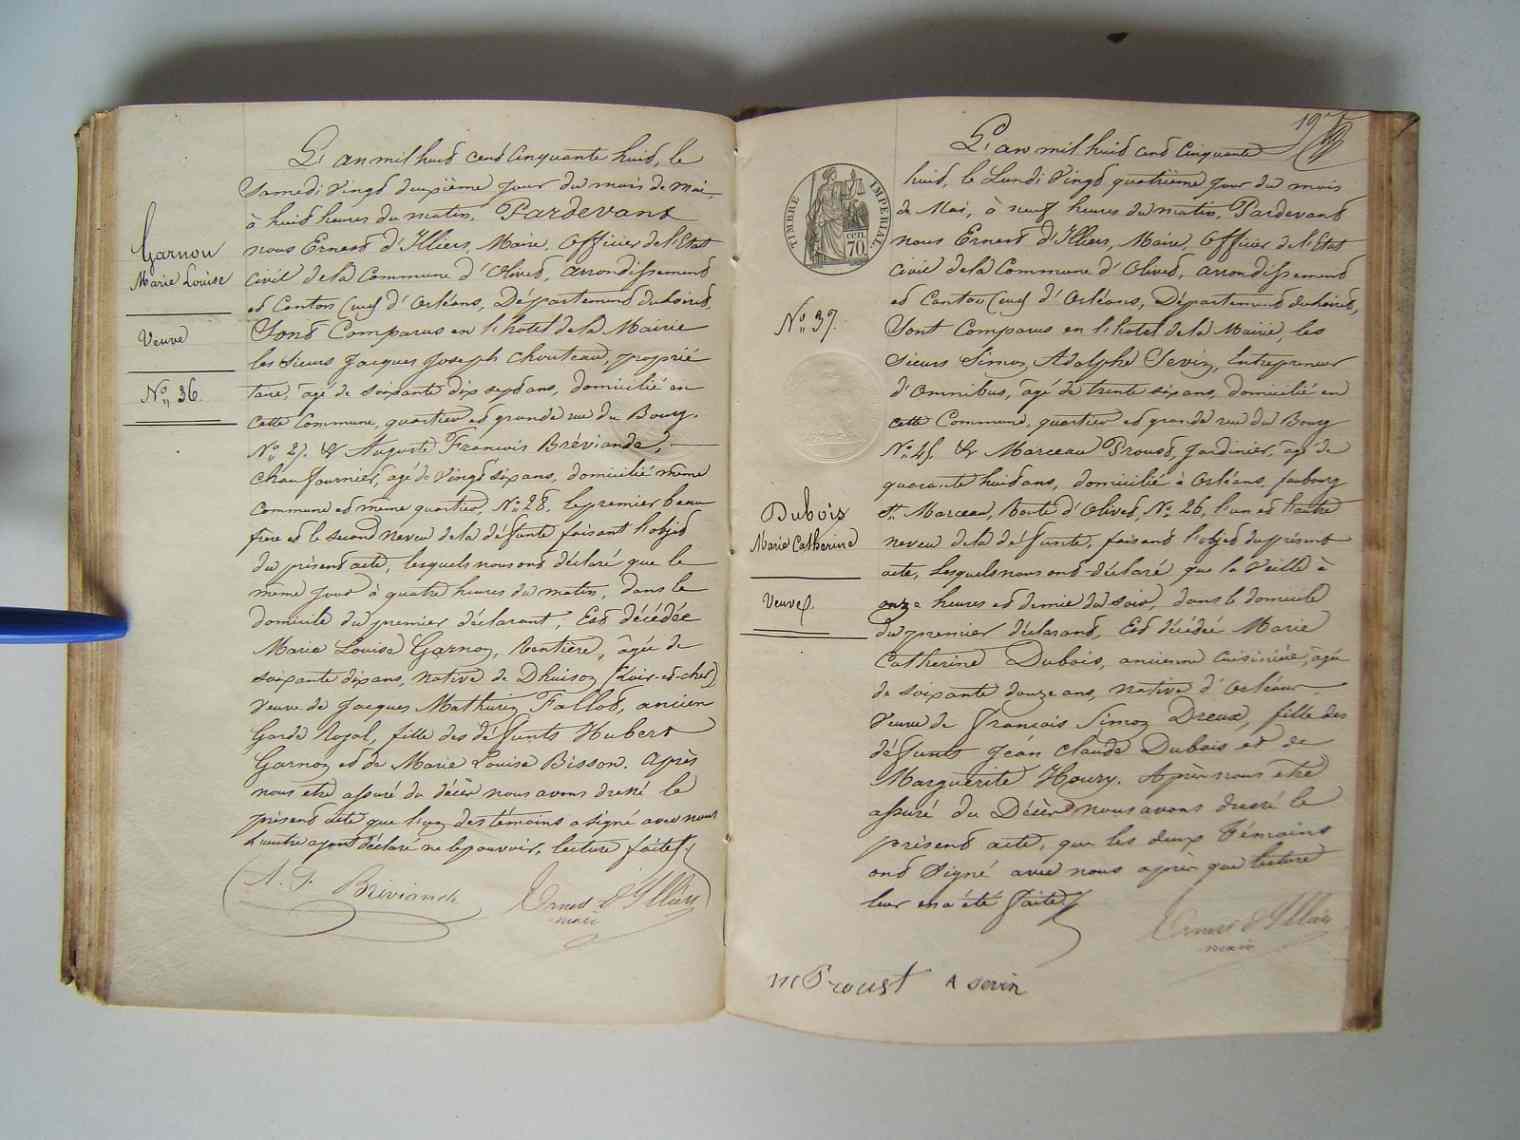 Garnon
Marie Louise
Veuve
No. 36.
L'an mil huit cent Cinquante huit, le
Samedi Vingt deuxième jour du mois de Mai,
à huit heures du matin, Pardevant
nous Ernest d'Illiers, Maire, Officier de l'Etat
civil de la Commune d'Olivet, arrondissement
et Canton Sud d'Orléans, Département du Loiret,
Sont Comparus en l'hotel de la Mairie
les Sieurs Jacques Joseph Chouteau, proprié
taire, âgé de soixante dix sept ans, domicilié en
cette Commune, quartier et grande rue du Bourg.
No. 27. & Auguste Francois Bréviande,
chaufournier, âgé de Vingt six ans, domicilié même
commune et même quartier, No. 28, le premier beau
frere et le second neveu de la défunte faisant l'objet
du présent acte, lesquels nous ont déclaré que le
même jour à quatre heures du matin, dans le
domicile du premier déclarant, Est décédée
Marie Louise Garnon, Rentière, âgée de
soixante dix ans, native de Dhuison (Loir-et-cher)
Veuve de Jacques Mathurin Fallot, ancien
Garde Royal, fille des défunts Hubert
Garnon et de Marie Louise Bisson. Après
nous etre assuré du décès nous avons dressé le
présent acte que l'un des témoins a signé avec nous
l'autre ayant déclaré ne le pouvoir, lecture faite
A. F. Breviande
Ernest d'Illiers
maire
19
TIMBRE IMPERIAL
70 cen.
No. 37.
Dubois
Marie Catherine
Veuve
L'an mil huit cent Cinquante
huit, le Lundi Vingt quatrième jour du mois
de Mai, à neuf heures du matin, Pardevant
nous Ernest d'Illiers, Maire, Officier de l'Etat
civil de la Commune d'Olivet, arrondissement
et Canton Sud d'Orléans, Département du Loiret,
Sont Comparus en l'hotel de la Mairie, les
Sieurs Simon Adolphe Sevin, Entrepreneur
d'Omnibus, âgé de trente six ans, domicilié en
cette Commune, quartier et grande rue du Bourg
No. 45. & Marceau Proust, Jardinier, âgé de
quarante huit ans, domicilié à Orléans, faubourg
St. Marceau, Route d'Olivet, No. 26, l'un et l'autre
neveu de la défunte, faisant l'objet du présent
acte, Lesquels nous ont déclaré que la Veille à
onze heures et demie du soir, dans le domicile
du premier déclarant, Est décédée Marie
Catherine Dubois, ancienne cuisinière, âgée
de soixante douze ans, native d'Orléans.
Veuve de François Simon Dreux, fille des
défunts Jean Claude Dubois et de
Marguerite Houry. Après nous etre
assuré du Décès nous avons dressé le
présent acte, que les deux témoins
ont Signé avec nous après que lecture
leur en a été faite
Ernest d'Illiers
maire
M Proust A Sevin